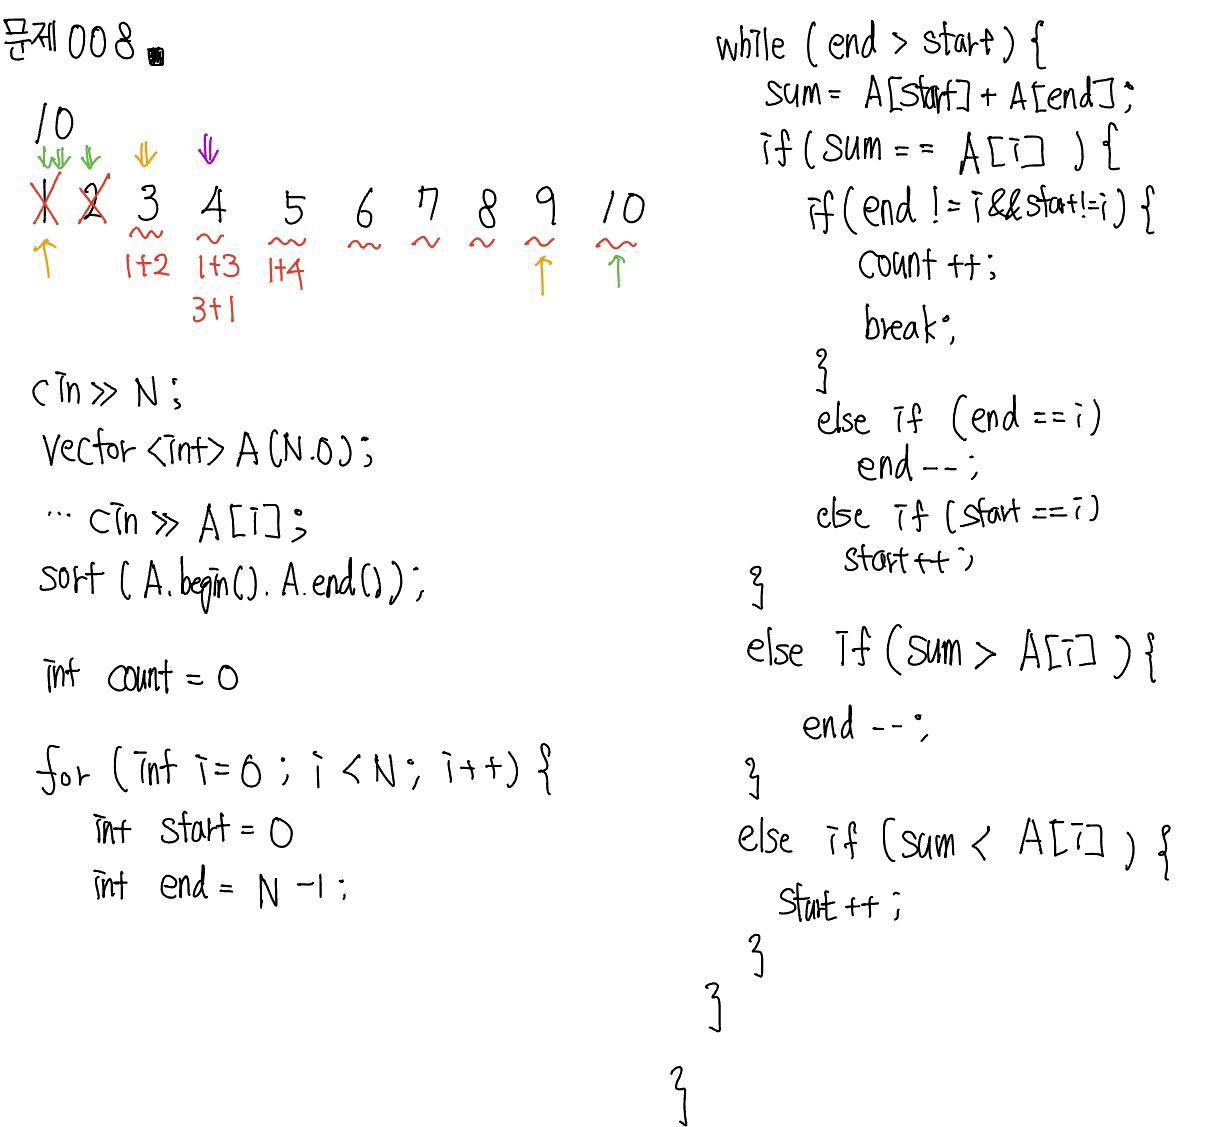 문제 008.
10
1 2 3 4 5 6 7 8 9 10
1+2 1+3 1+4
3+1
cin >> N;
vector <int> A(N.0);
... cin >> A[i];
sort (A.begin(). A.end());
int count = 0
for (int i=0 ; i < N; i++) {
int start = 0
int end = N -1;
while (end > start) {
sum = A[start] + A[end];
if (sum == A[i] ) {
if (end != i && start != i) {
count ++;
break;
}
else if (end == i)
end --;
else if (start == i)
start ++;
}
else if (sum > A[i] ) {
end --;
}
else if (sum < A[i] ) {
start ++;
}
}
}